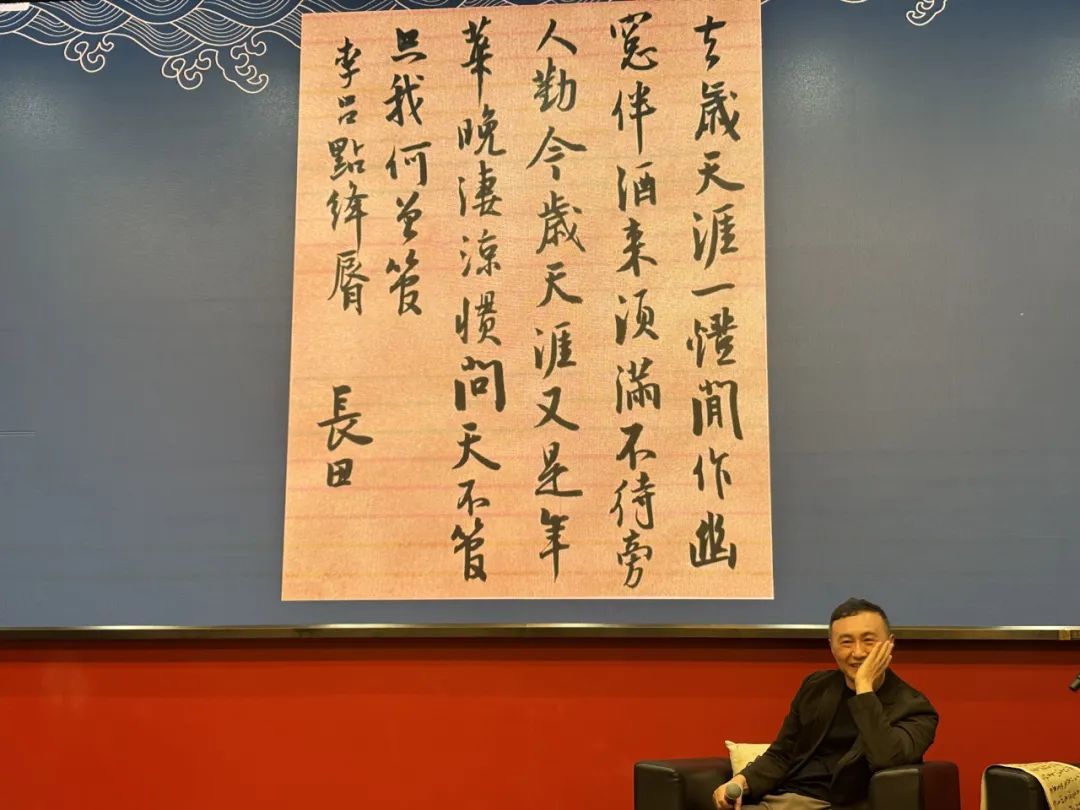 去歲天涯一燈閒作幽
窓伴酒来須滿不待旁
人勤今歲天涯又是年
華晚淒涼慣問天不管
只我何曾管
李呂點絳脣 長田